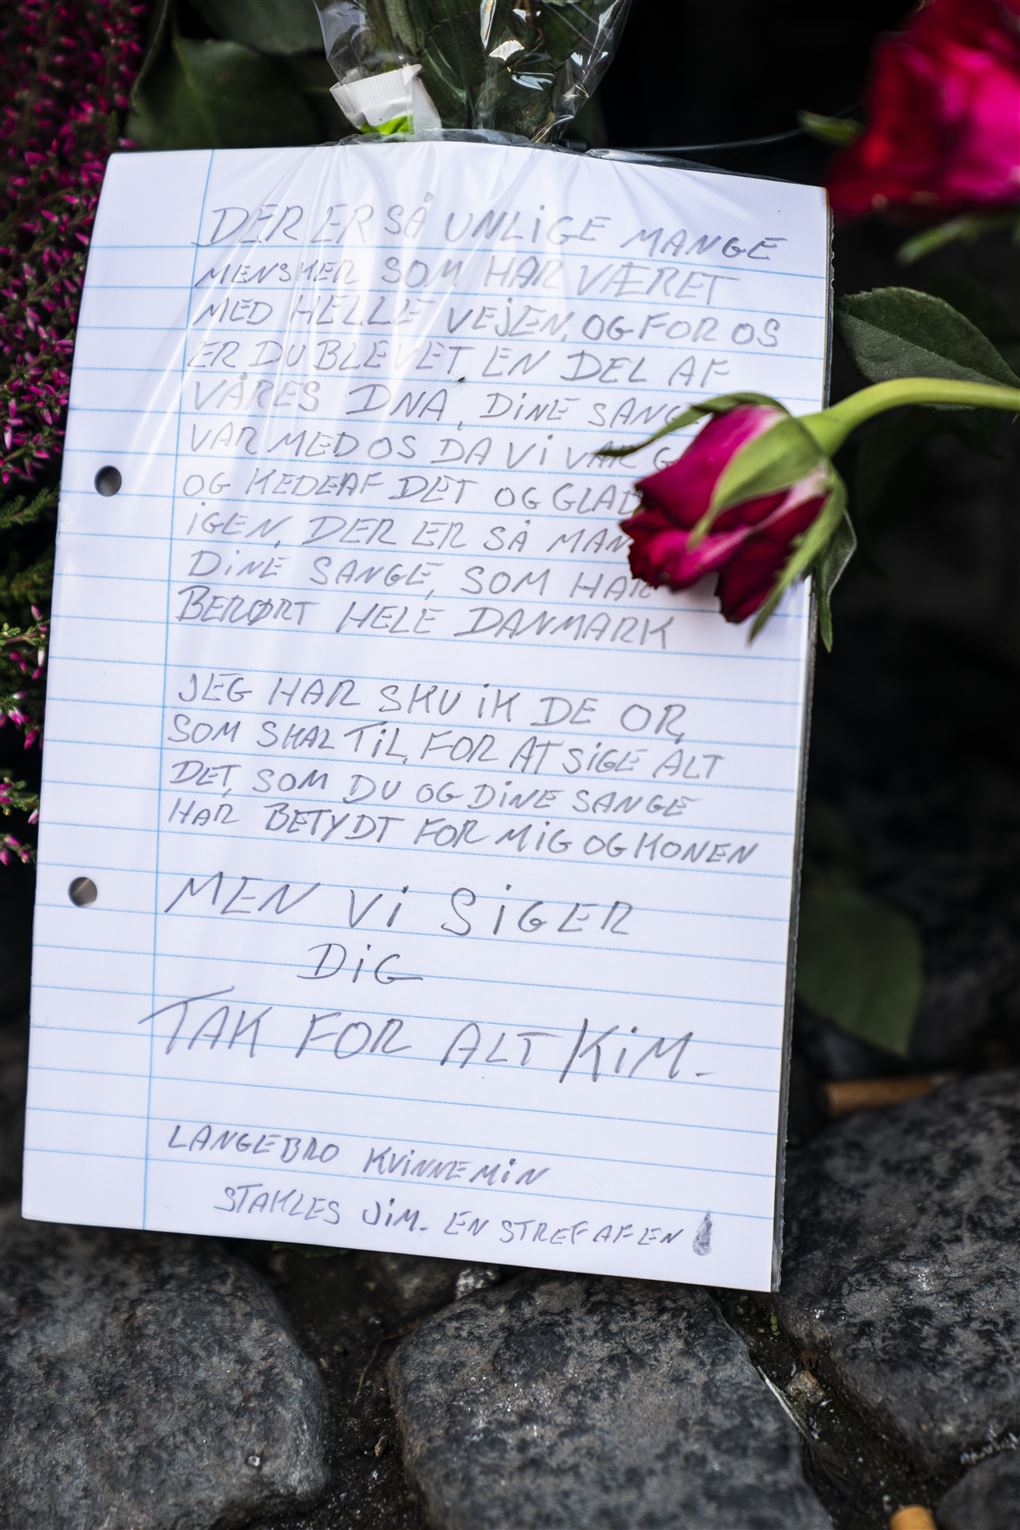 DER ER SÅ UNLIGE MANGE
MENSKER SOM HAR VÆRET
MED HELLE VEJEN, OG FOR OS
ER DU BLEVET EN DEL AF
VÅRES DNA, DINE SANGE
VAR MED OS DA VI VAR
OG KEDEAF DET OG GLAD
IGEN, DER ER SÅ
DINE SANGE, SOM HAR
BERØRT HELE DANMARK
JEG HAR SKU IK DE OR,
SOM SKAL TIL, FOR AT SIGE ALT
DET, SOM DU OG DINE SANGE
HAR BETYDT FOR MIG OG KONEN
MEN VI SIGER
DIG
TAK FOR ALT KIM.
LANGEBRO KVINNEMIN
STAKLES JIM. EN STREF AF EN